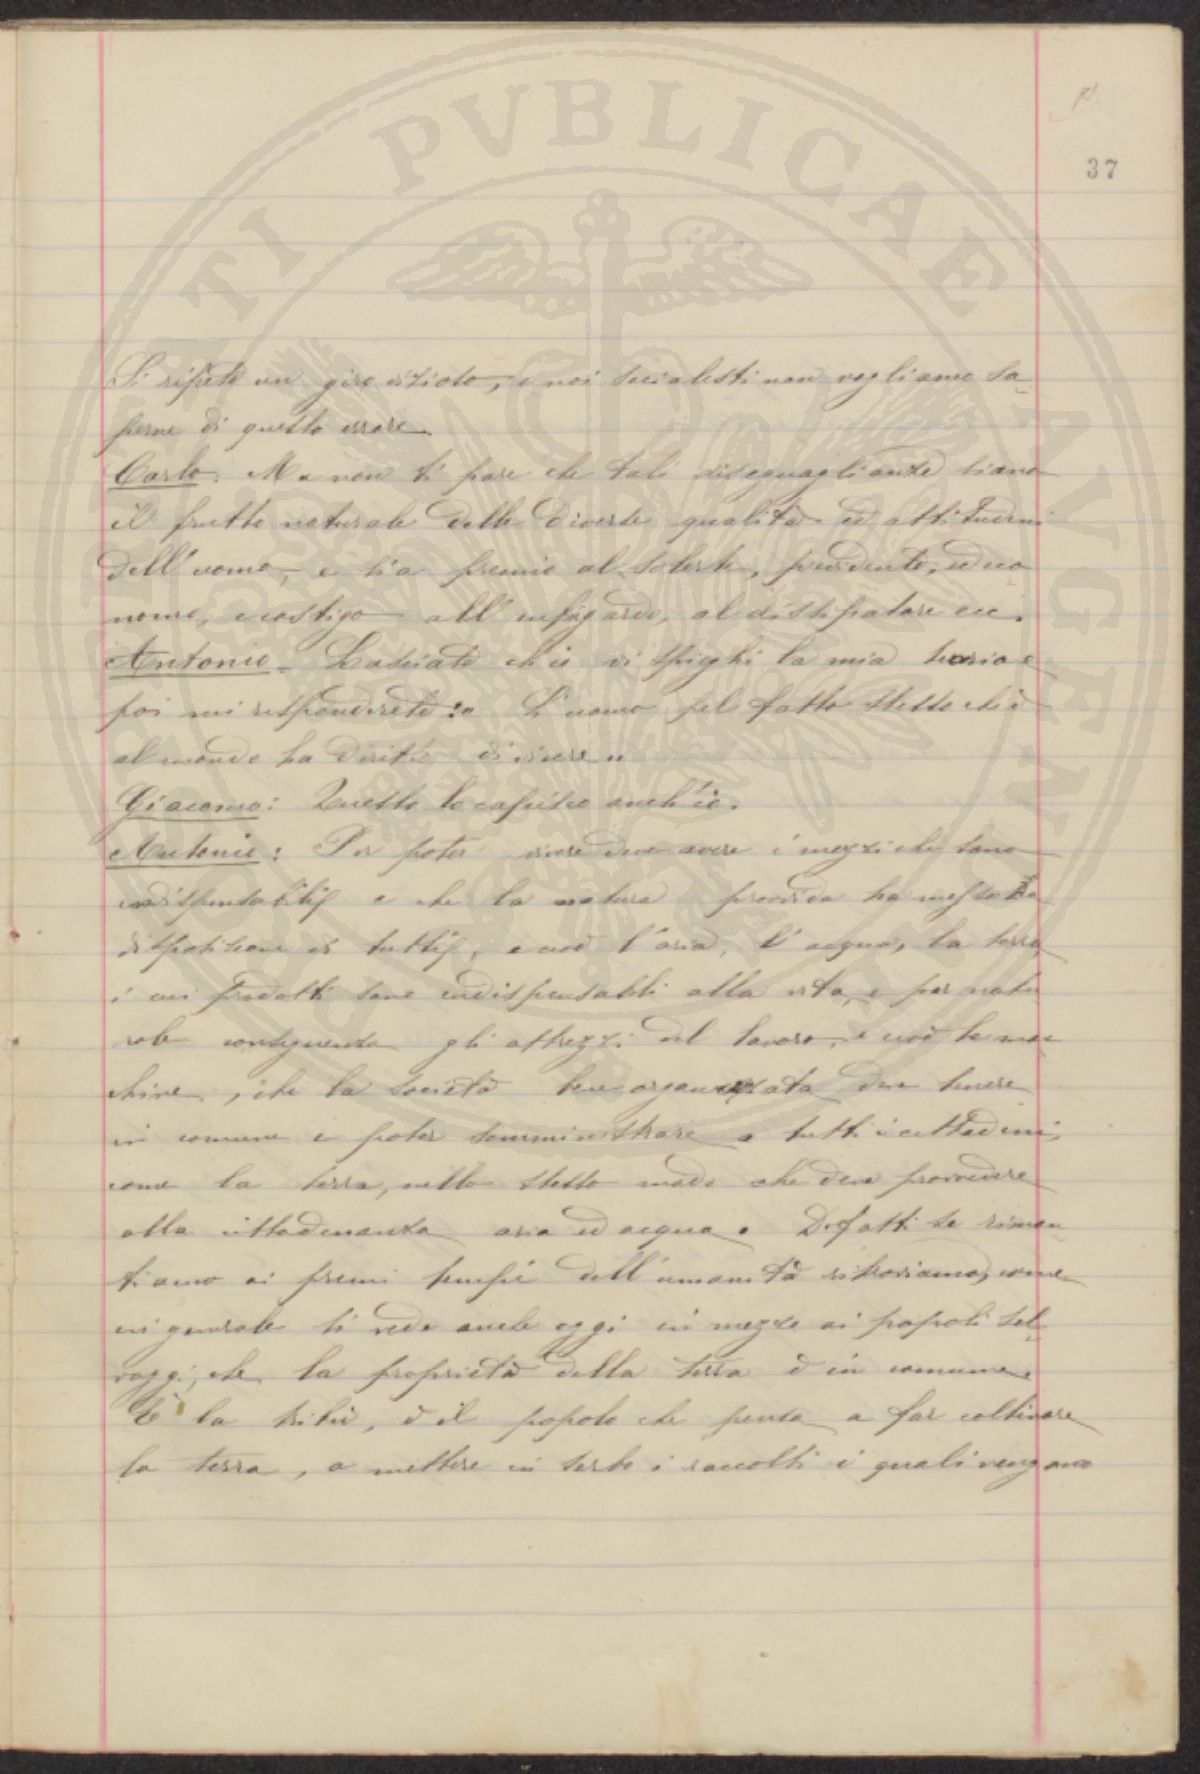 37
Si ripete un giro vizioso, e noi socialisti non vogliamo sa-
perne di questo errore
Carlo: Ma non ti pare che tali diseguaglianze siano
il frutto naturale delle diverse qualità ed attitudini
dell'uomo, e sia premio al solerte, previdente, eco-
nomo, e castigo all'infingardo, al dissipatore ecc.
Antonio - Lasciate ch'io vi spieghi la mia teoria e
poi mi risponderete: L'uomo pel fatto stesso ch'è
al mondo ha diritto di vivere"
Giacomo: Questo lo capisco anch'io.
Antonio: Per poter vivere deve avere i mezzi che sono
indispensabili e che la natura provvida ha messo a
disposizione di tutti, e cioè l'aria, l'acqua, la terra,
i cui prodotti sono indispensabli alla vita, e per natu
rale conseguenza gli attrezzi del lavoro, e cioè le mac
chine, che la società bene organizzata deve tenere
in comune e poter somministrare a tutti i cittadini,
come la terra, nello stesso modo che deve provvedere
alla cittadinanza aria ed acqua. Difatti se rimon-
tiamo ai primi tempi dell'umanità ritroviamo, come
in generale si vede anche oggi in mezzo ai popoli sel-
vaggi, che la proprietà della terra è in comune.
È la tribù, è il popolo che pensa a far coltivare
la terra, a mettere in serbo i raccolti i quali vengono
PVBLICAE